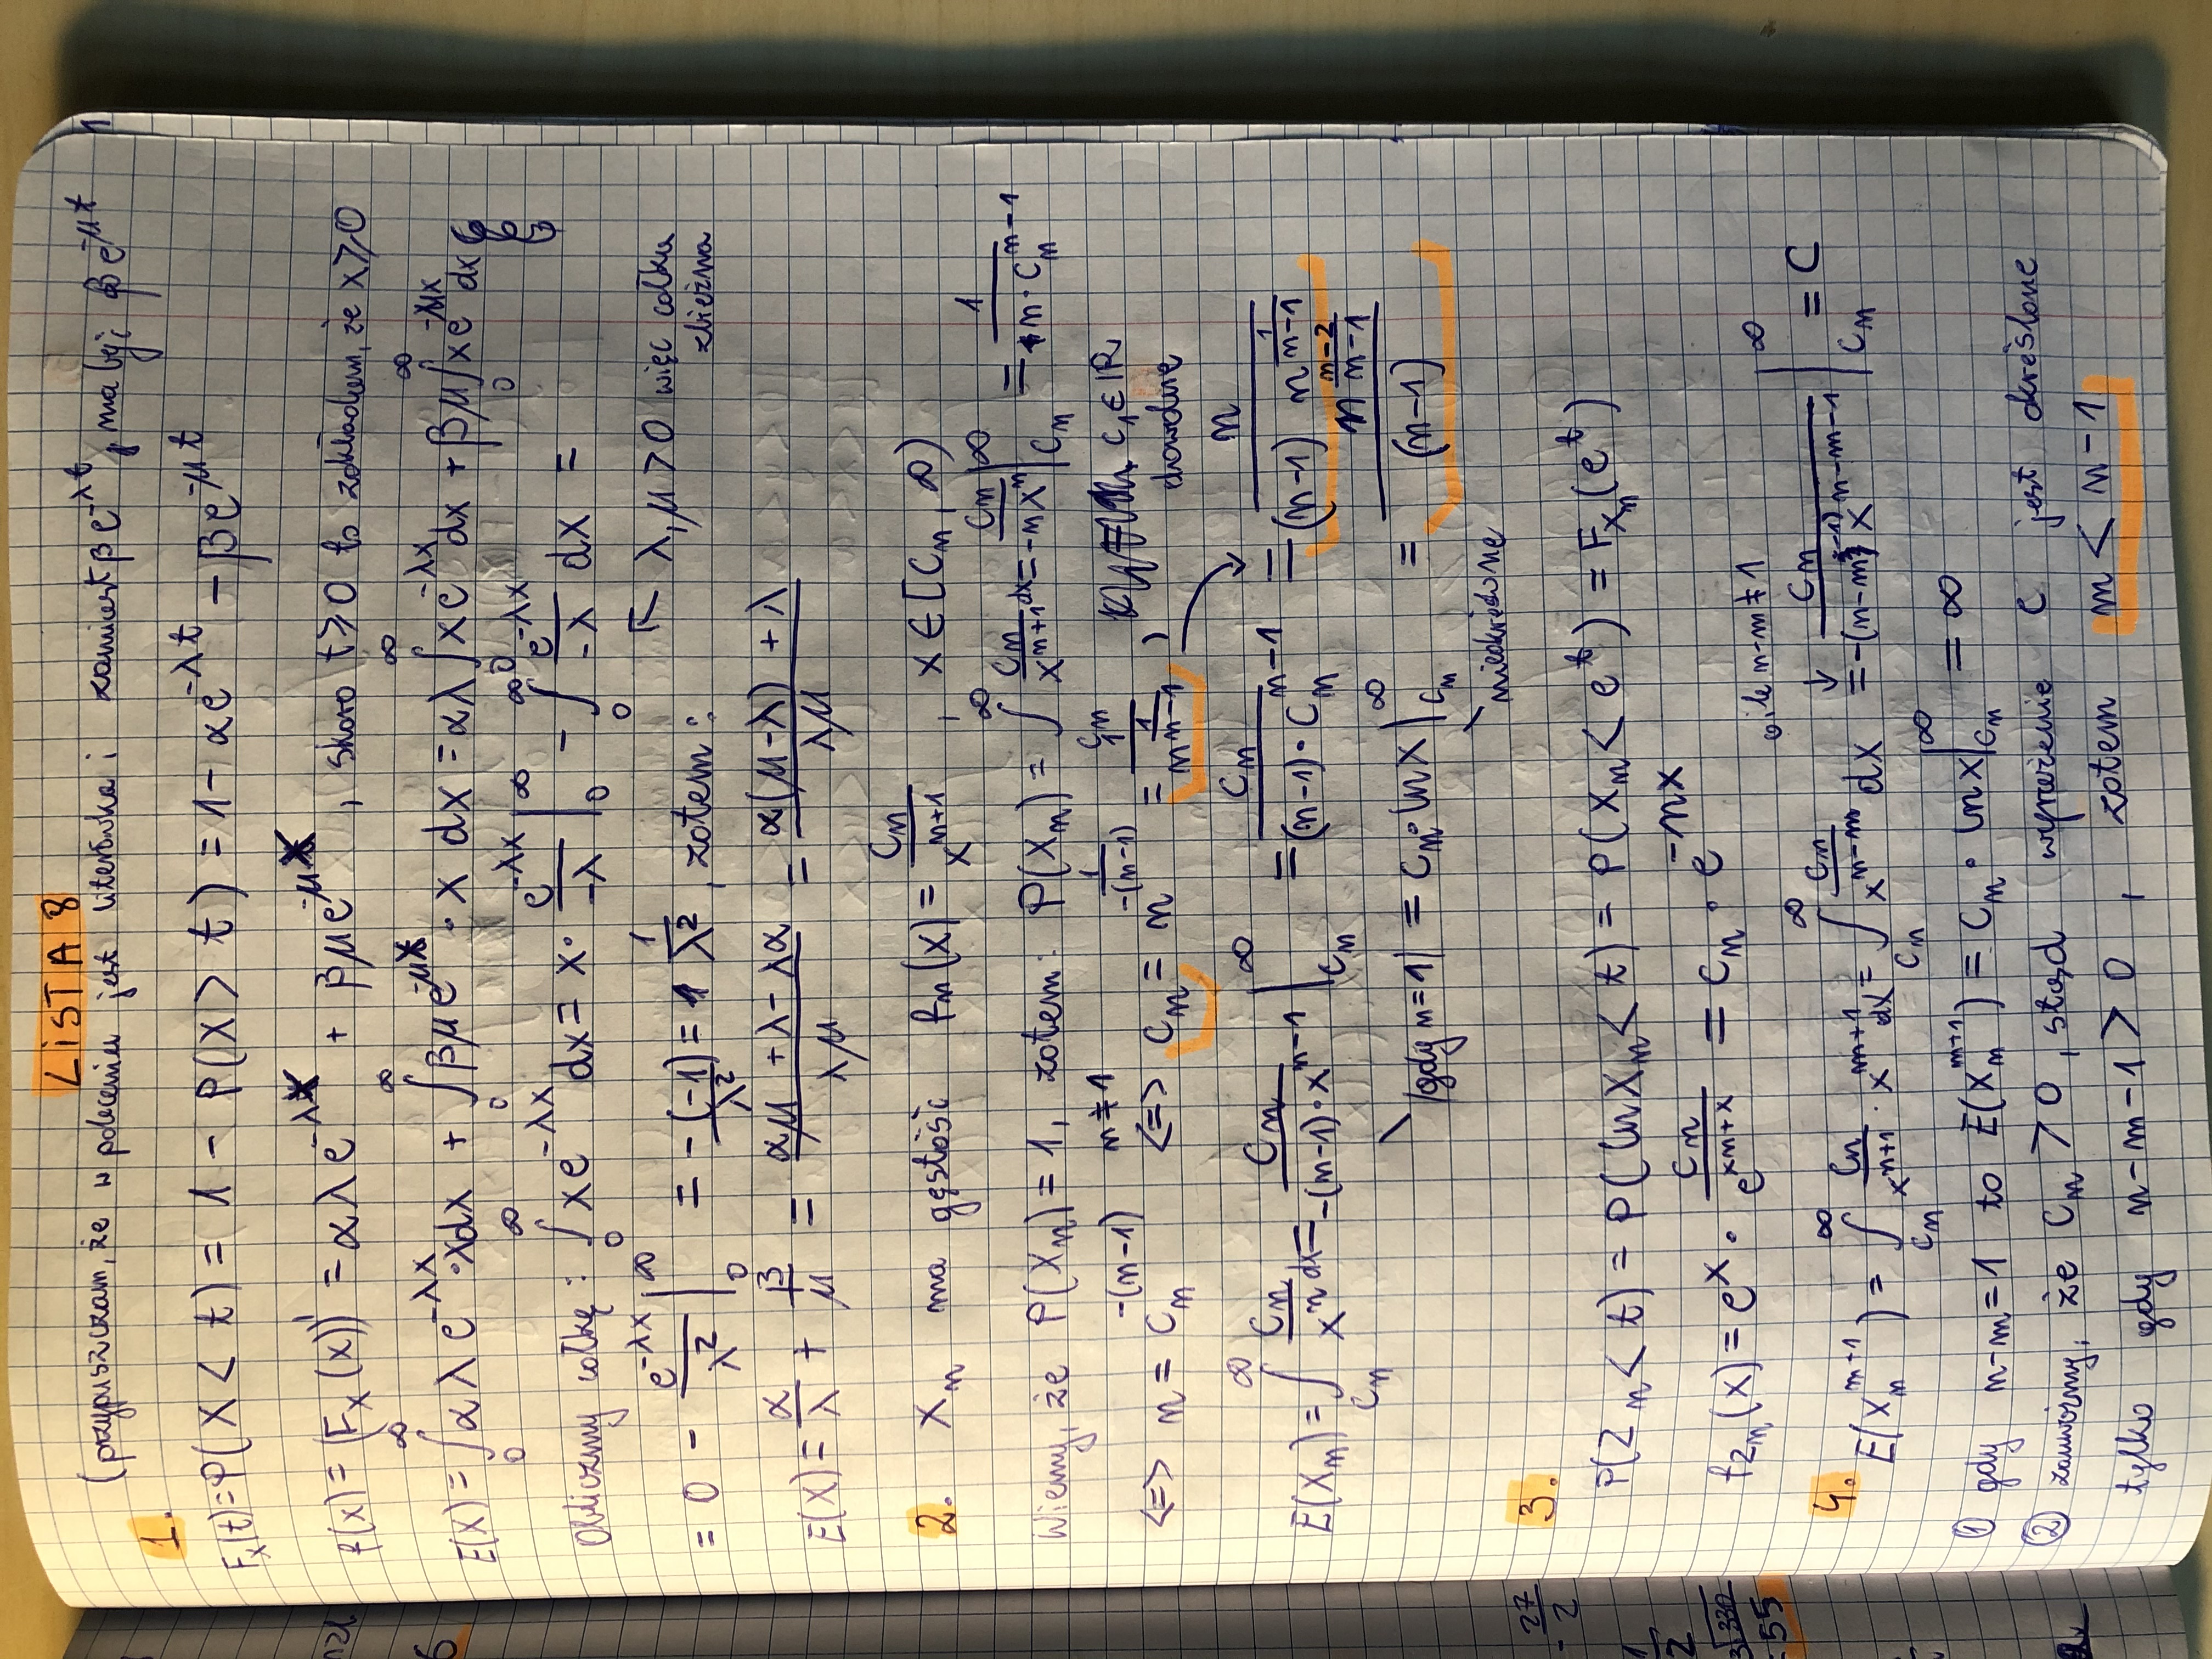 LISTA 8
(przypuszczam, że w poleceniu jest literówka i zamiast βe^{-λt}, ma być βe^{-μt}
1.
F_X(t) = P(X < t) = 1 - P(X > t) = 1 - αe^{-λt} - βe^{-μt}
f(x) = (F_X(x))' = αλe^{-λx} + βμe^{-μx}, skoro t ≥ 0 to zakładam, że x ≥ 0
E(X) = ∫_0^∞ αλe^{-λx}·xdx + ∫_0^∞ βμe^{-μx}·x dx = αλ∫_0^∞ xe^{-λx}dx + βμ∫_0^∞ xe^{-μx}dx
Obliczmy całkę: ∫_0^∞ xe^{-λx} dx = x·\frac{e^{-λx}}{-λ}|_0^∞ - ∫_0^∞ \frac{e^{-λx}}{-λ} dx =
= 0 - \frac{e^{-λx}}{λ^2}|_0^∞ = \frac{-(-1)}{λ^2} = \frac{1}{λ^2}, zatem:
↖ λ, μ > 0 więc całka
zbieżna
E(X) = \frac{α}{λ} + \frac{β}{μ} = \frac{αμ + λ - λα}{λμ} = \frac{α(μ-λ) + λ}{λμ}
2. X_n ma gęstość f_n(x) = \frac{C_n}{x^{n+1}}, x ∈ [C_n, ∞)
Wiemy, że P(X_n) = 1, zatem: P(X_n) = ∫_{C_n}^∞ \frac{C_n}{x^{n+1}}dx = \frac{C_n}{-nx^n}|_{C_n}^∞ = \frac{1}{n·C_n^{n-1}}
<=> n = C_n^{-(n-1)} n≠1 <=> C_n = n^{\frac{1}{-(n-1)}} = \frac{1}{n^{\frac{1}{n-1}}}, C_1 ∈ IR
dowolne
E(X_n) = ∫_{C_n}^∞ \frac{C_n}{x^n}dx = \frac{C_n}{-(n-1)·x^{n-1}}|_{C_n}^∞ = \frac{C_n}{(n-1)·C_n^{n-1}} = \frac{n}{(n-1) n^{\frac{1}{n-1}}}
\ |gdy n=1| = C_n·lnx|_{C_n}^∞ = \frac{n^{\frac{n-2}{n-1}}}{(n-1)}
\ nieokreślone
3.
P(Z_n < t) = P(lnX_n < t) = P(X_n < e^t) = F_{X_n}(e^t)
f_{Z_n}(x) = e^x · \frac{C_n}{e^{xn+x}} = C_n · e^{-nx}
o ile n-m≠1
4. E(X_n^{m+1}) = ∫_{C_n}^∞ \frac{C_n}{x^{n+1}} · x^{m+1}dx = ∫_{C_n}^∞ \frac{C_n}{x^{n-m}} dx = \frac{C_n}{-(n-m-1) x^{n-m-1}}|_{C_n}^∞ = C
① gdy n-m=1 to E(X_n^{m+1}) = C_n · lnx|_{C_n}^∞ = ∞
② zauważmy, że C_n > 0, stąd wyrażenie C jest określone
tylko gdy n-m-1 > 0, zatem m < n-1
6
-\frac{27}{2}
330
=55